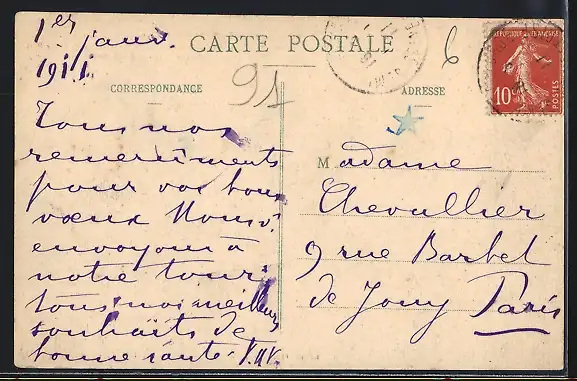 1er
janv.
1911.
CARTE POSTALE
CORRESPONDANCE
ADRESSE
91
6
RÉPUBLIQUE FRANÇAISE
10c
POSTES
Tous nos
remerciments
pour vos bons
vœux Nous v.
envoyons à
notre tour
tous nos meilleurs
souhaits de
bonne santé.
Madame
Chevallier
9 rue Barbet
de Jouy Paris